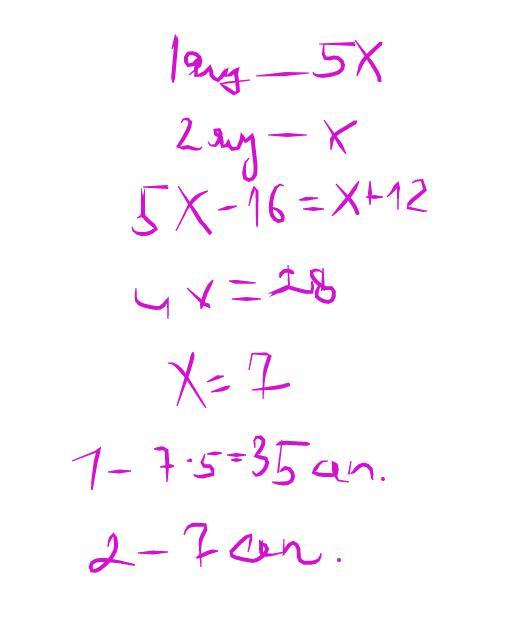 1 ящ — 5X
2 ящ — x
5X - 16 = X + 12
4x = 28
X = 7
1 - 7 · 5 = 35 ап.
2 - 7 ап.